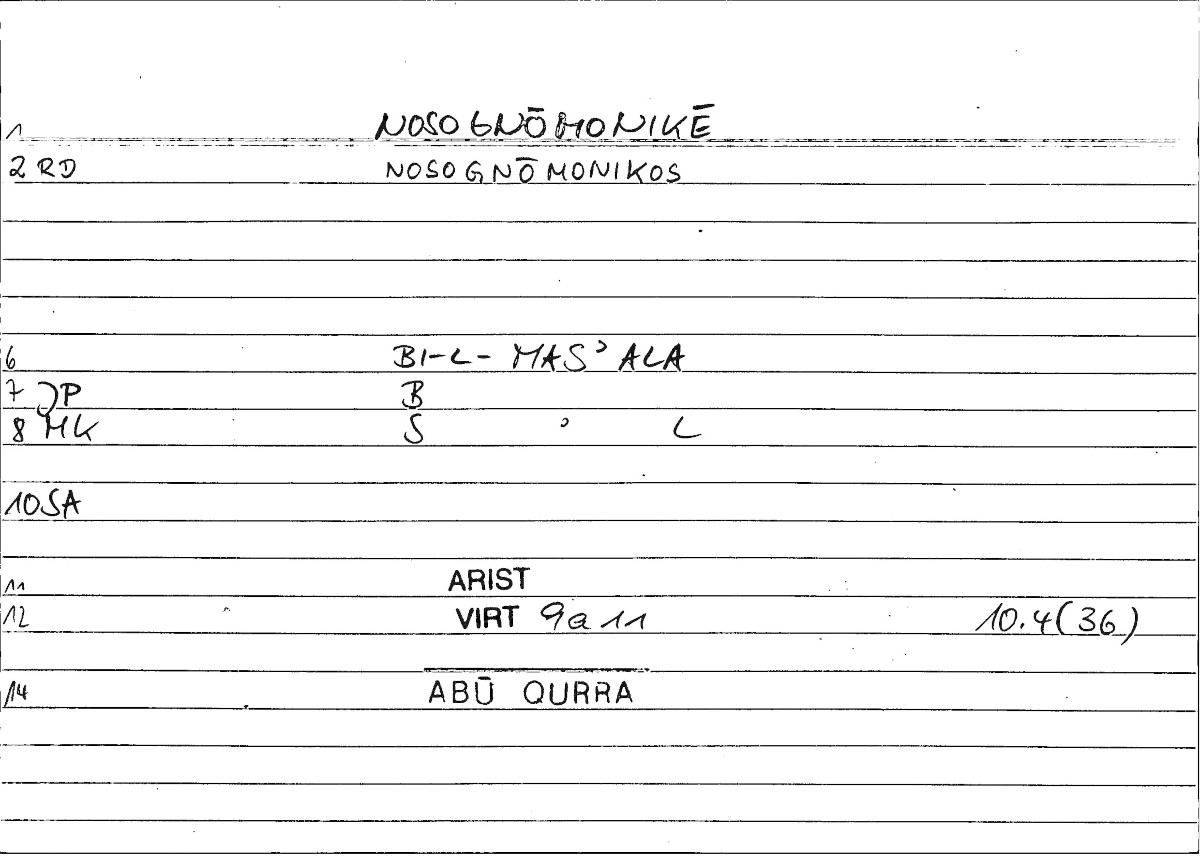 1 NOSOGNŌMONIKĒ
2 RD NOSOGNŌMONIKOS
6 BI-L-MAS'ALA
7 JP B
8 MK S ' L
10 SA
11 ARIST
12 VIRT 9a11 10.4(36)
14 ABŪ QURRA